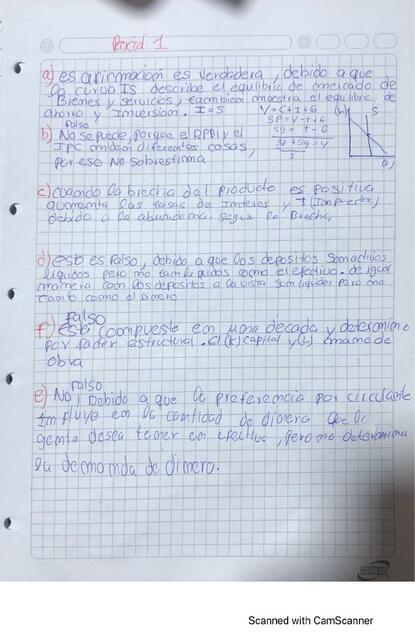 Parcial 1
a) es afirmación es Verdadera, debido a que
la curva IS describe el equilibrio de mercado de
Bienes y servicios, tambien muestra el equilibrio de
ahorro y Inversion. I=S
Y=C+I+G
SP=Y-T+G
Sg= T-G
SP+Sg=Y
S
falso
b) No se puede, porque el DPBI y el
IPC miden diferentes cosas,
por eso No sobrestima
c) cuando la brecha del producto es positiva
aumenta las tasas de Interes y T (Impuestos)
debido a la segun la Brecha,
d) esto es falso, debido a que los depositos son activos
liquidos pero no tan liquidos como el efectivo. de igual
manera con los depositos a la vista son liquidos pero no
tanto como el Dinero
falso
f) està compuesto en una decada y determino
por factor estructural. el (K) capital y (L) mano de
obra
falso
e) No, Debido a que la preferencia por circulante
Influye en la cantidad de dinero que la
gente desea tener en efectivo, pero no determina
la demanda de dinero.
Scanned with CamScanner